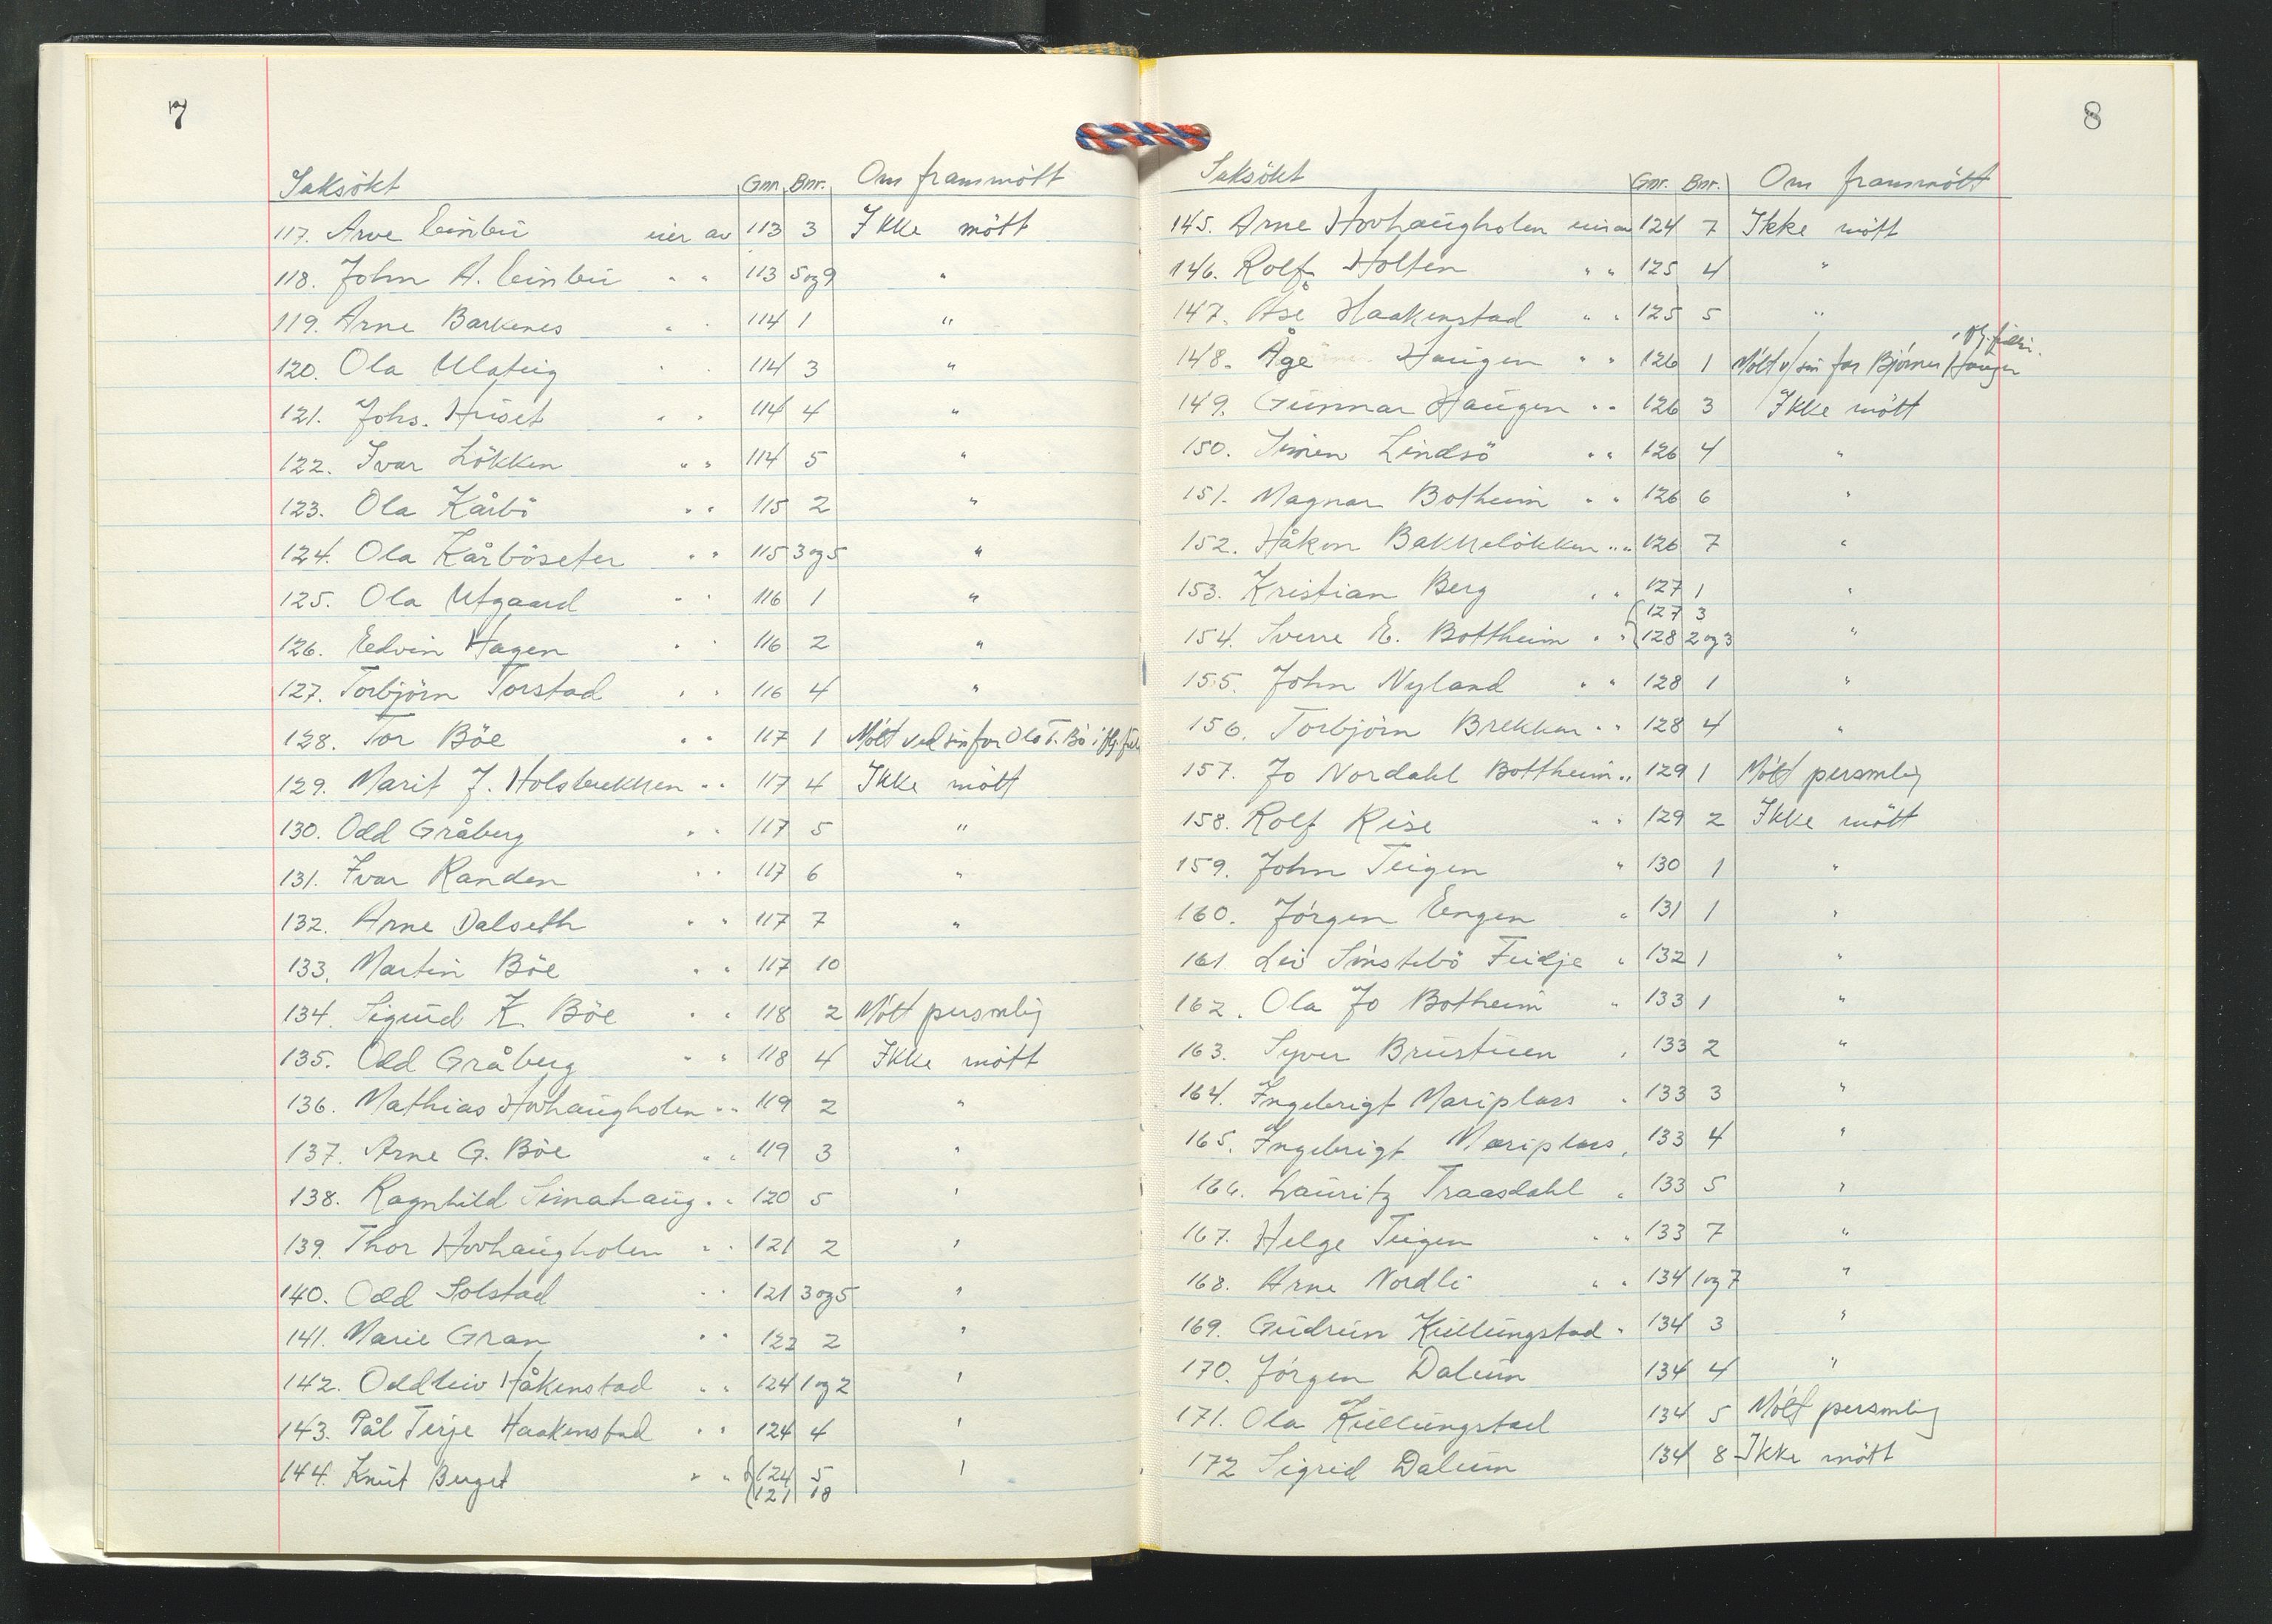 7
Saksökt Gnr. Bnr. Om frammött
117. Arve Einbu eier av 113 3 Ikke mött
118. John A. Einbu " " 113 5 og 9 "
119. Arne Barkenes " " 114 1 "
120. Ola Ulateig " " 114 3 "
121. Johs. Huset " " 114 4 "
122. Ivar Lökken " " 114 5 "
123. Ola Kårbö " " 115 2 "
124. Ola Kårböseter " " 115 3 og 5 "
125. Ola Utgaard " " 116 1 "
126. Edvin Hagen " " 116 2 "
127. Torbjörn Torstad " " 116 4 "
128. Tor Böe " " 117 1 Mött ved sin far Ola T. Bö i flg.
129. Marit J. Holsbrekken " " 117 4 Ikke mött
130. Odd Gråberg " " 117 5 "
131. Ivar Randen " " 117 6 "
132. Arne Dalseth " " 117 7 "
133. Martin Böe " " 117 10
134. Sigurd K. Böe " " 118 2 Mött personlig
135. Odd Gråberg " " 118 4 Ikke mött
136. Mathias Hovhaugholen " " 119 2 "
137. Arne G. Böe " " 119 3 "
138. Ragnhild Simahaug " " 120 5 "
139. Thor Hovhaugholen " " 121 2 "
140. Odd Solstad " " 121 3 og 5 "
141. Marie Gran " " 122 2 "
142. Oddleiv Håkenstad " " 124 1 og 2 "
143. Pål Terje Haakenstad " " 124 4 "
144. Knut Berget " " 124 5 "
121 18
8
Saksökt Gnr. Bnr. Om frammött
145. Arne Hovhaugholen eier av 124 7 Ikke mött
146. Rolf Holten " " 125 4 "
147. Åse Haakenstad " " 125 5 "
148. Åge Haugen " " 126 1 Mött v/ sin far Bjørner Haugen
149. Gunnar Haugen " " 126 3 Ikke mött
150. Simen Lindsö " " 126 4 "
151. Magnar Botheim " " 126 6 "
152. Håkon Bakkelökken " " 126 7 "
153. Kristian Berg " " 127 1 "
127 3
154. Sverre E. Bottheim " " 128 2 og 3 "
155. John Nyland " " 128 1 "
156. Torbjörn Brekken " " 128 4 "
157. Jo Nordahl Bottheim " " 129 1 Mött personlig
158. Rolf Rise " " 129 2 Ikke mött
159. John Teigen " 130 1 "
160. Jörgen Engen " 131 1 "
161. Liv Simstebö Feidje " 132 1 "
162. Ola Jo Botheim " 133 1 "
163. Syver Brustuen " 133 2 "
164. Ingebrigt Mariplass " 133 3 "
165. Ingebrigt Mariplass " 133 4 "
166. Lauritz Traasdahl " 133 5 "
167. Helge Teigen " " 133 7 "
168. Arne Nordli " " 134 1 og 7 "
169. Gudrun Kjellungstad " 134 3 "
170. Jörgen Dalum 134 4 "
171. Ola Kjellungstad 134 5 Mött personlig
172 Sigrid Dalum 134 8 Ikke mött